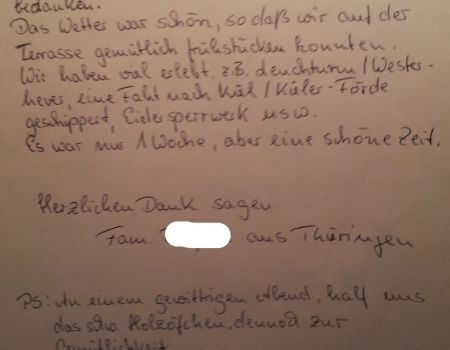 bedanken.
Das Wetter war schön, so daß wir auf der
Terrasse gemütlich frühstücken konnten.
Wir haben viel erlebt. z.B. Leuchturm / Wester-
hever, eine Faht nach Kiel / Kieler-Förde
geschippert, Eidersperrwerk usw.
Es war nur 1 Woche, aber eine schöne Zeit.
Herzlichen Dank sagen
Fam. aus Thüringen
PS: An einem gewittrigen Abend, half uns
das schw. Holzöfchen dennoch zur
Gemütlichkeit